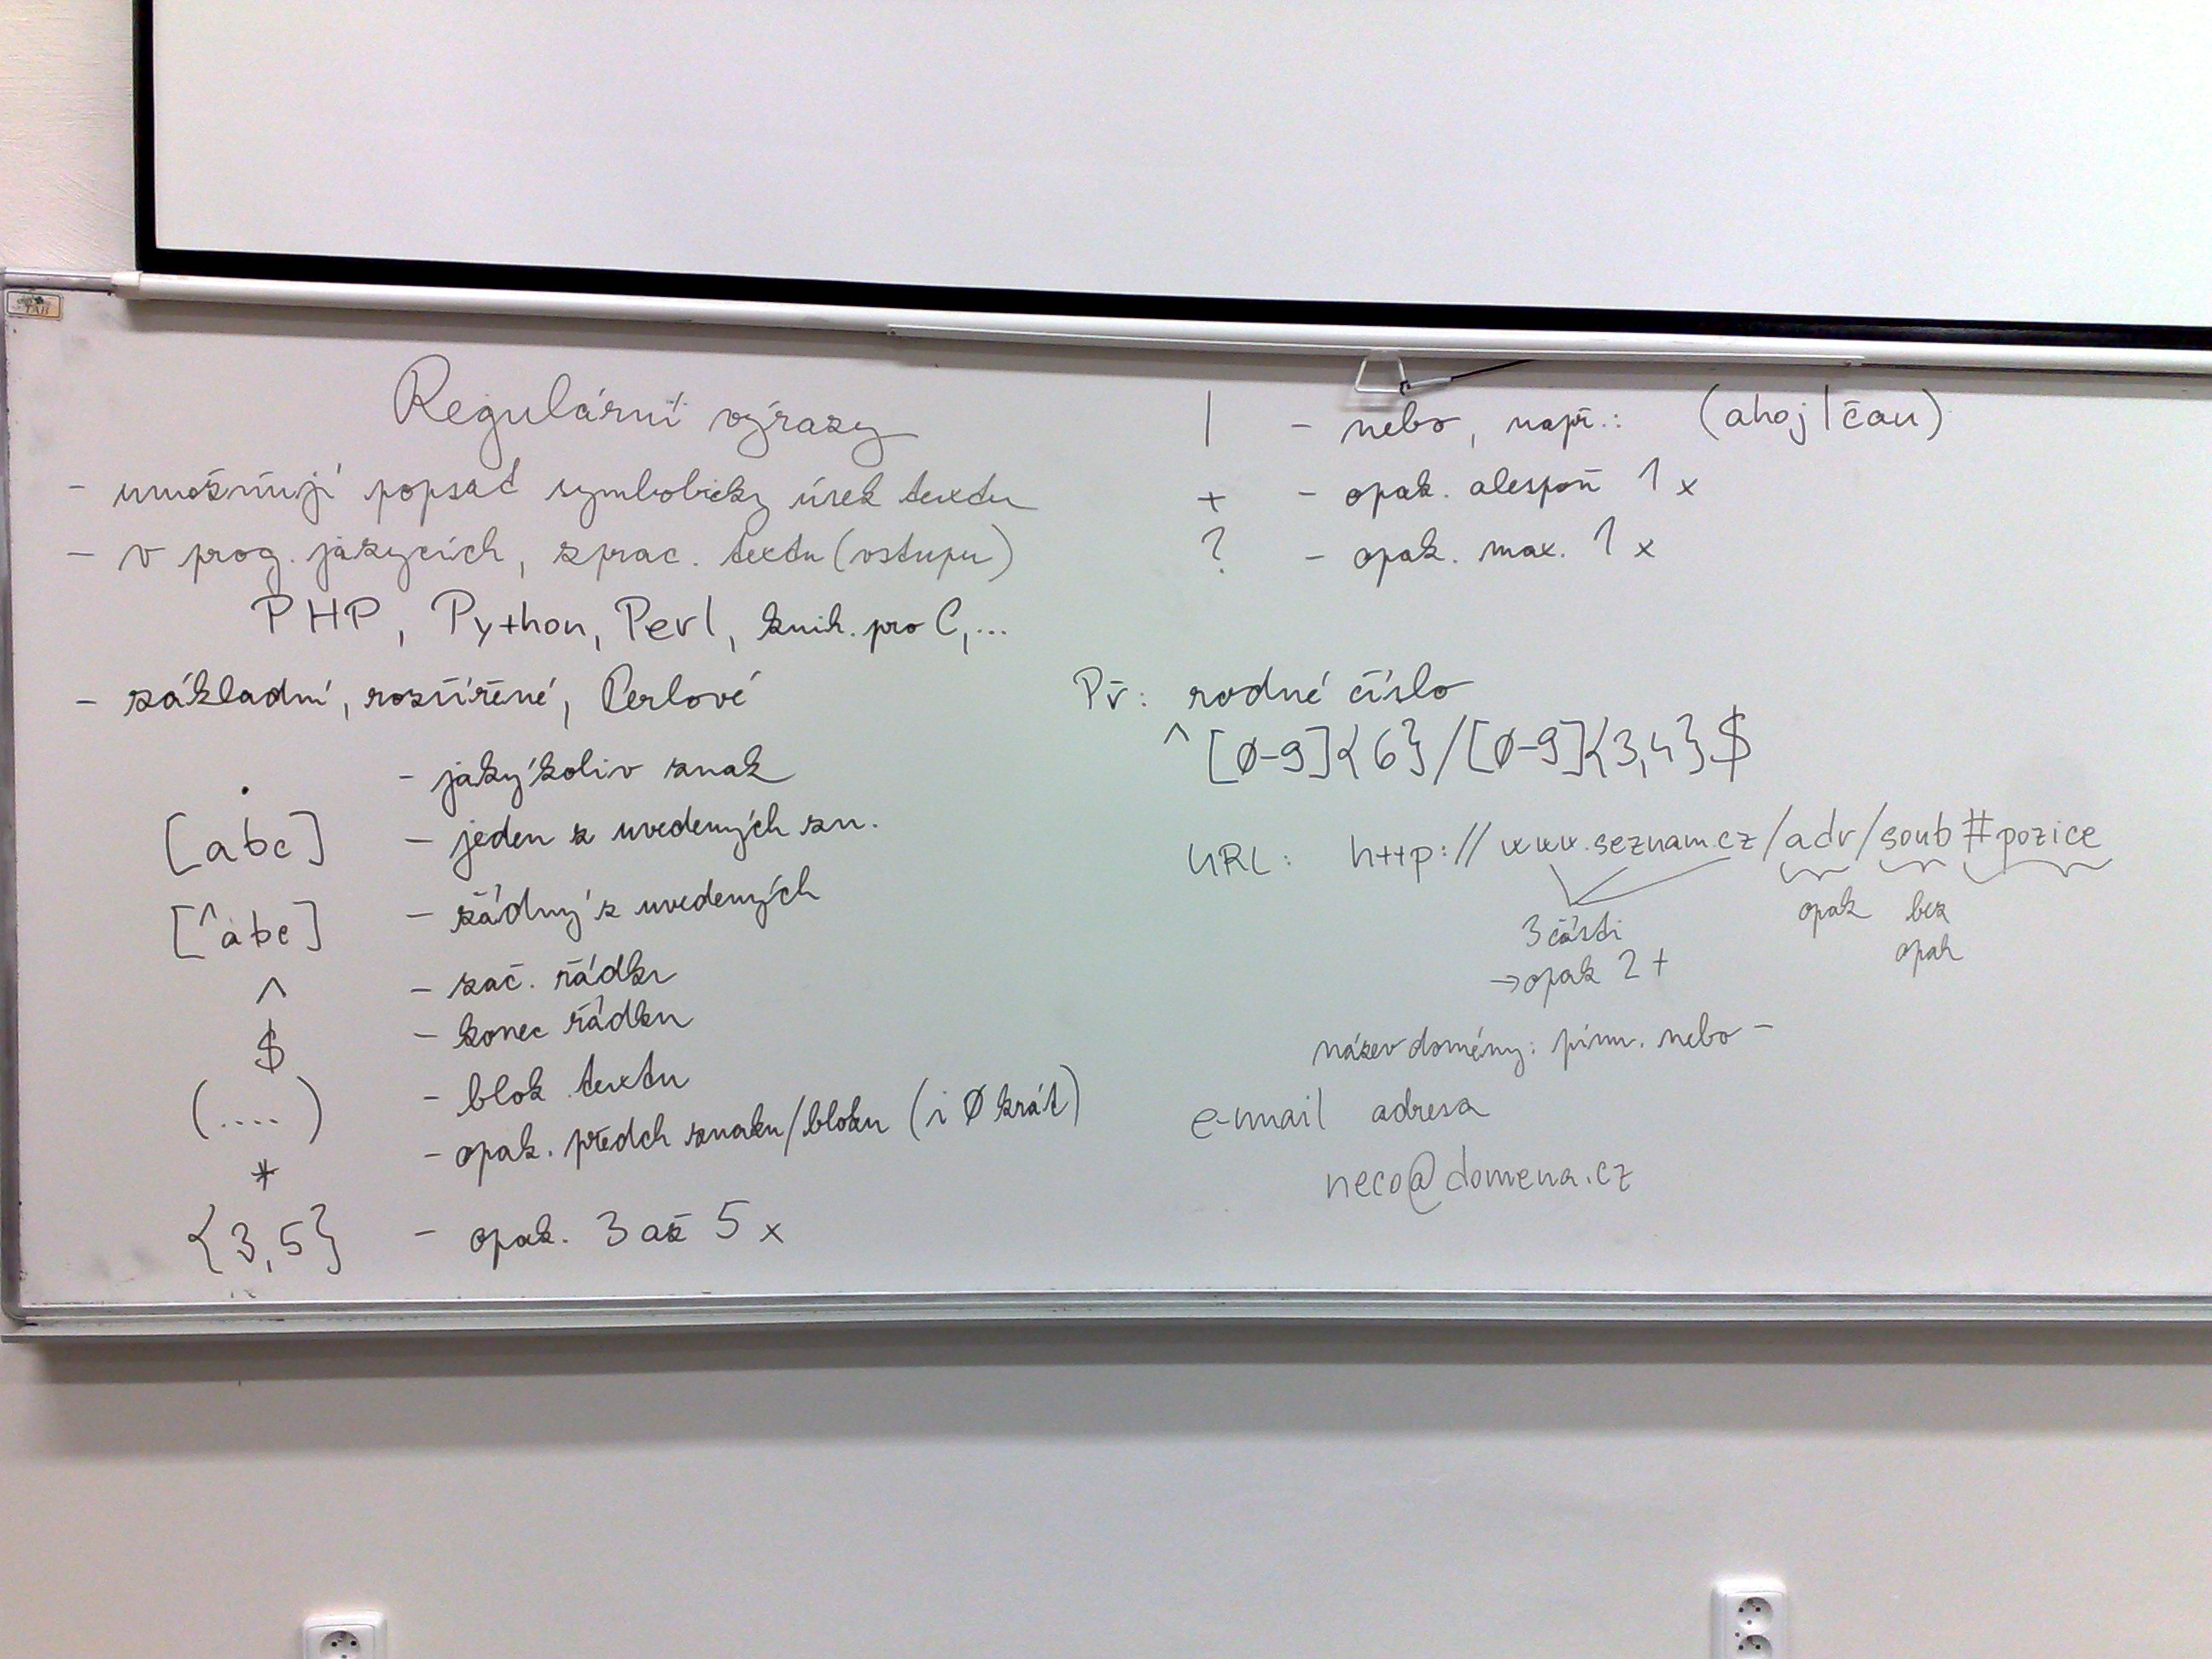 Regulární výrazy
- umožňují popsat symbolicky úsek textu
- v prog. jazycích, zprac. textu (vstupu)
PHP, Python, Perl, knih. pro C, ...
- základní, rozšířené, Perlové
. - jakýkoliv znak
[abc] - jeden z uvedených zn.
[^abc] - žádný z uvedených
^ - zač. řádku
$ - konec řádku
(....) - blok textu
* - opak. předch znaku/bloku (i 0 krát)
{3,5} - opak. 3 až 5 x
| - nebo, např.: (ahoj|čau)
+ - opak. alespoň 1 x
? - opak. max. 1 x
Př: rodné číslo
^[0-9]{6}/[0-9]{3,4}$
URL: http://www.seznam.cz/adr/soub#pozice
3 části opak bez
→ opak 2 + opak
název domény: písm. nebo -
e-mail adresa
neco@domena.cz